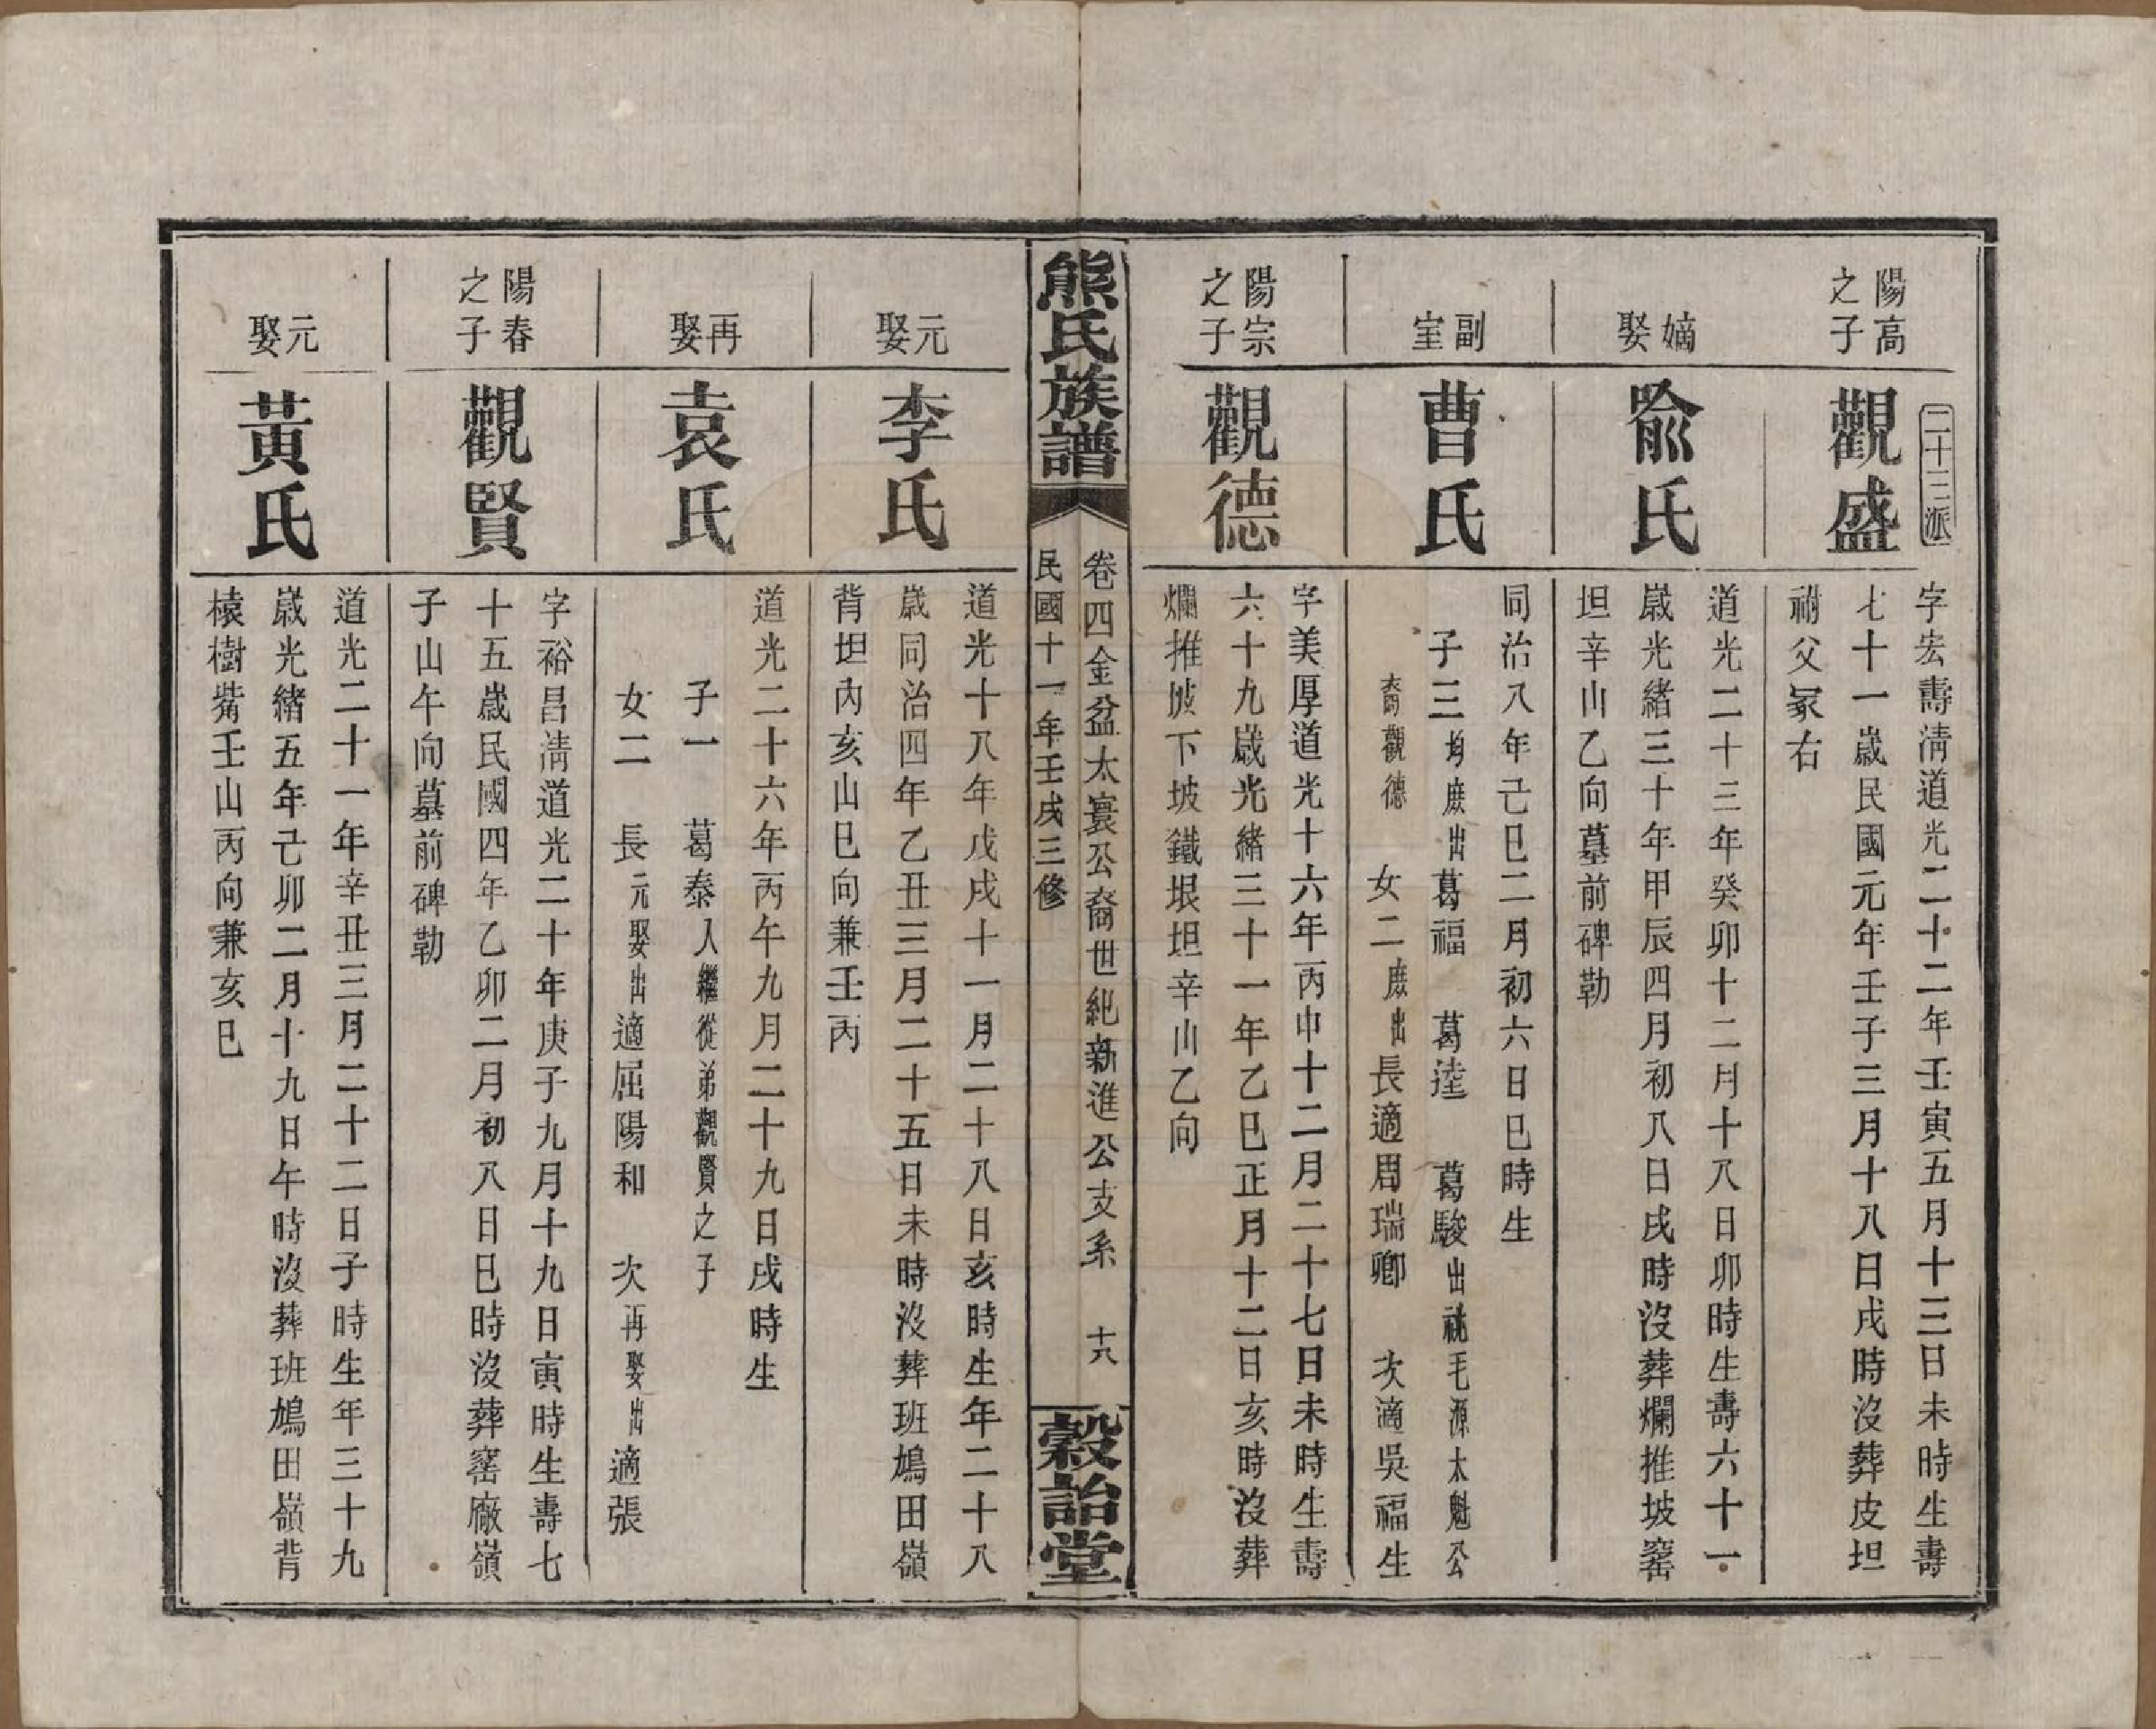 陽高
之子
二十三派
觀盛
字宏壽淸道光二十二年壬寅五月十三日未時生壽
七十一歲民國元年壬子三月十八日戌時沒葬皮坦
祔父冢右
嫡
娶
兪氏
道光二十三年癸卯十二月十八日卯時生壽六十一
歲光緒三十年甲辰四月初八日戌時沒葬爛推坡窰
坦辛山乙向墓前碑勒
副
室
曹氏
同治八年己巳二月初六日巳時生
子三均庶出葛福　葛逵　葛駿出祧毛源太魁公
裔觀德　女二庶出長適周瑞卿　次適吳福生
陽宗
之子
觀德
字美厚道光十六年丙申十二月二十七日未時生壽
六十九歲光緒三十一年乙巳正月十二日亥時沒葬
爛推坡下坡鐵垠坦辛山乙向
熊氏族譜
卷四金盆太寰公裔世紀新進公支系　十八
民國十一年壬戌三修
穀詒堂
元
娶
李氏
道光十八年戊戌十一月二十八日亥時生年二十八
歲同治四年乙丑三月二十五日未時沒葬班鳩田嶺
背坦內亥山巳向兼壬丙
再
娶
袁氏
道光二十六年丙午九月二十九日戌時生
子一　葛泰入繼從弟觀賢之子
女二　長元娶出適屈陽和　次再娶出適張
陽春
之子
觀賢
字裕昌淸道光二十年庚子九月十九日寅時生壽七
十五歲民國四年乙卯二月初八日巳時沒葬窰廠嶺
子山午向墓前碑勒
元
娶
黃氏
道光二十一年辛丑三月二十二日子時生年三十九
歲光緒五年己卯二月十九日午時沒葬班鳩田嶺背
榬樹嘴壬山丙向兼亥巳